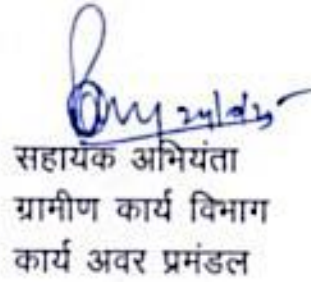 सहायक अभियंता
ग्रामीण कार्य विभाग
कार्य अवर प्रमंडल